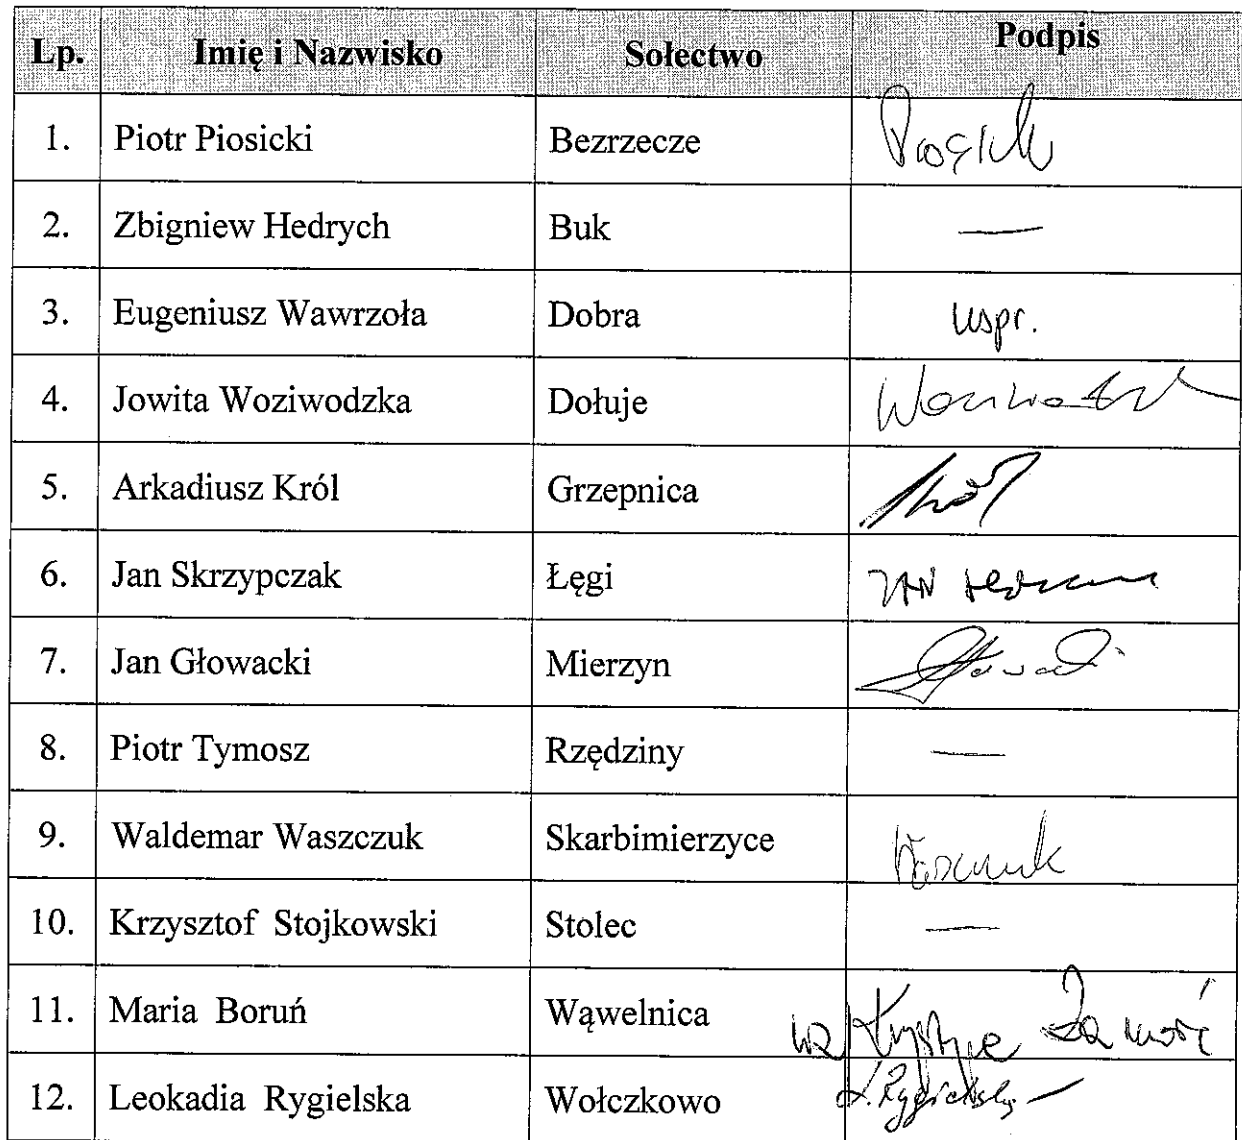 Lp. Imię i Nazwisko Sołectwo Podpis
1. Piotr Piosicki Bezrzecze
2. Zbigniew Hedrych Buk —
3. Eugeniusz Wawrzoła Dobra uspr.
4. Jowita Woziwodzka Dołuje
5. Arkadiusz Król Grzepnica Król
6. Jan Skrzypczak Łęgi JAN
7. Jan Głowacki Mierzyn Głowacki
8. Piotr Tymosz Rzędziny —
9. Waldemar Waszczuk Skarbimierzyce Waszczuk
10. Krzysztof Stojkowski Stolec —
11. Maria Boruń Wąwelnica wz Krystyna
12. Leokadia Rygielska Wołczkowo L. Rygielska